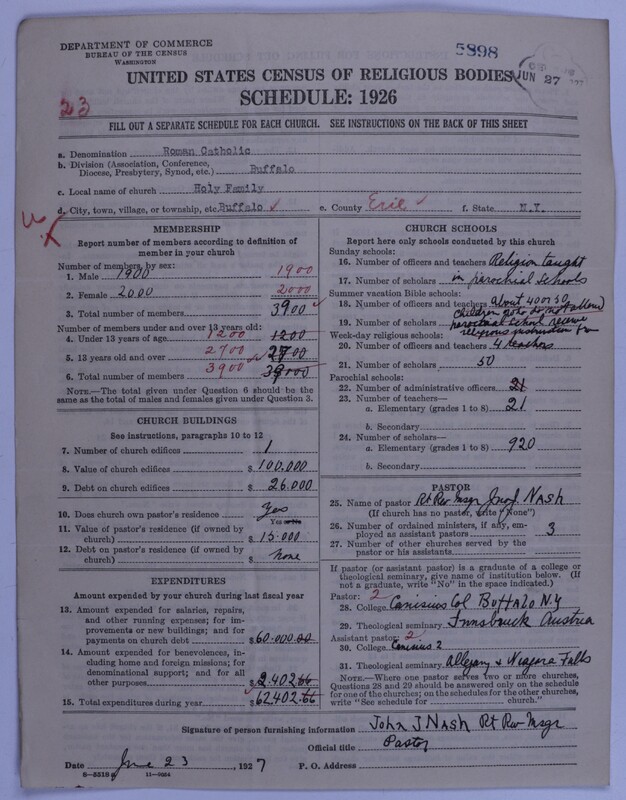 DEPARTMENT OF COMMERCE
BUREAU OF THE CENSUS
WASHINGTON
5898
JUN 27
UNITED STATES CENSUS OF RELIGIOUS BODIES
SCHEDULE: 1926
23
FILL OUT A SEPARATE SCHEDULE FOR EACH CHURCH. SEE INSTRUCTIONS ON THE BACK OF THIS SHEET
a. Denomination Roman Catholic
b. Division (Association, Conference, Diocese, Presbytery, Synod, etc.) Buffalo
c. Local name of church Holy Family
d. City, town, village, or township, etc. Buffalo ✓ e. County Erie ✓ f. State N.Y.
MEMBERSHIP
Report number of members according to definition of
member in your church
Number of members by sex:
1. Male 1900 1900
2. Female 2000 2000
3. Total number of members 3900 ✓
Number of members under and over 13 years old:
4. Under 13 years of age 1200 1200
5. 13 years old and over 2700 2700
6. Total number of members 3900 3900
NOTE.—The total given under Question 6 should be the
same as the total of males and females given under Question 3.
CHURCH BUILDINGS
See instructions, paragraphs 10 to 12
7. Number of church edifices 1
8. Value of church edifices $ 100,000
9. Debt on church edifices $ 26.000
10. Does church own pastor's residence Yes
Yes or No
11. Value of pastor's residence (if owned by
church) $ 15.000
12. Debt on pastor's residence (if owned by
church) $ None
EXPENDITURES
Amount expended by your church during last fiscal year
13. Amount expended for salaries, repairs,
and other running expenses; for im-
provements or new buildings; and for
payments on church debt $ 60.000.00
14. Amount expended for benevolences,
including home and foreign missions; for
denominational support; and for all
other purposes $ 2.402.66
15. Total expenditures during year $ 62.402.66
CHURCH SCHOOLS
Report here only schools conducted by this church
Sunday schools:
16. Number of officers and teachers Religion taught
17. Number of scholars in parochial schools
Summer vacation Bible schools:
18. Number of officers and teachers about 40 or 50
children who do not attend
19. Number of scholars parochial school receive
religious instruction from
Week-day religious schools:
20. Number of officers and teachers 4 teachers
21. Number of scholars 50
Parochial schools:
22. Number of administrative officers 21
23. Number of teachers—
a. Elementary (grades 1 to 8) 21
b. Secondary
24. Number of scholars—
a. Elementary (grades 1 to 8) 920
b. Secondary
PASTOR
25. Name of pastor Rt Rev Msgr Jno J Nash
(If church has no pastor, write "None")
26. Number of ordained ministers, if any, em-
ployed as assistant pastors 3
27. Number of other churches served by the
pastor or his assistants
If pastor (or assistant pastor) is a graduate of a college or
theological seminary, give name of institution below. (If
not a graduate, write "No" in the space indicated.)
Pastor: 2
28. College Canisius Col Buffalo N.Y
29. Theological seminary Innsbruck Austria
Assistant pastor: 2
30. College Canisius 2
31. Theological seminary Allegany & Niagara Falls
NOTE.—Where one pastor serves two or more churches,
Questions 28 and 29 should be answered only on the schedule
for one of the churches; on the schedules for the other churches,
write "See schedule for church."
Signature of person furnishing information John J Nash Rt Rev Msgr
Official title Pastor
Date June 23, 1927 P. O. Address
8-5518a 11-9034